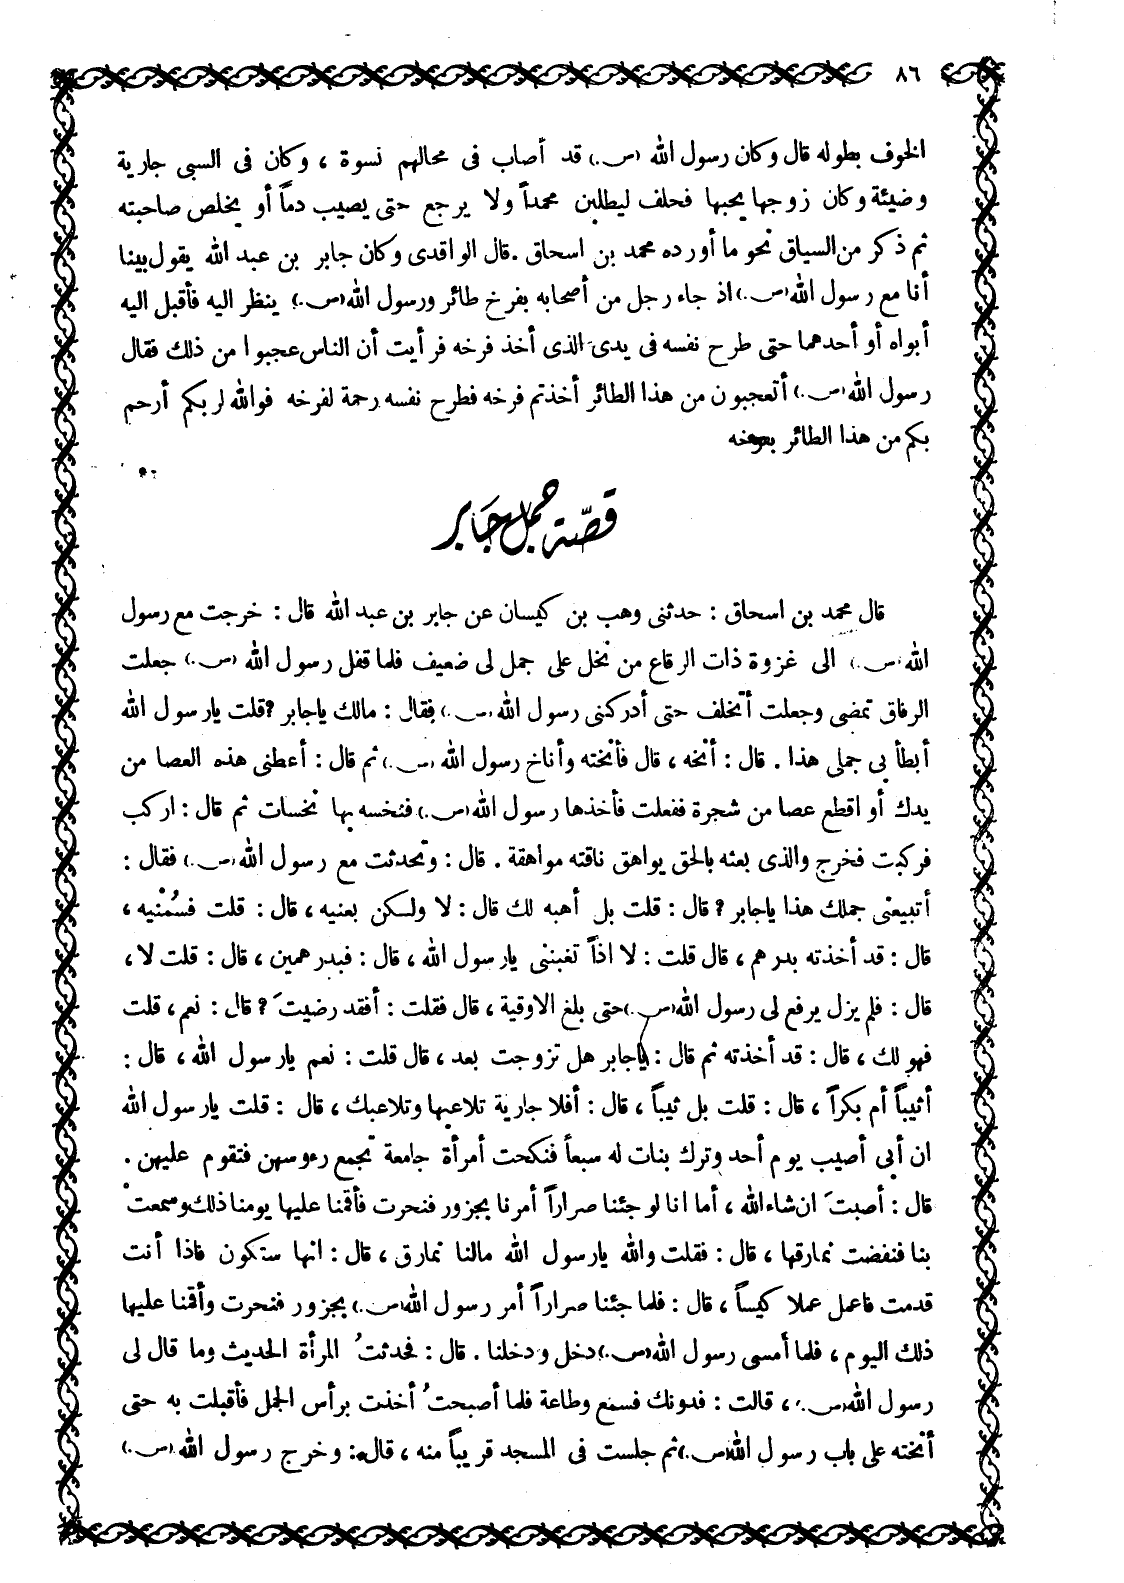 ٨٦
الخوف بطوله قال وكان رسول الله (س.) قد أصاب فى محالهم نسوة ، وكان فى السبى جارية
وضيئة وكان زوجها يحبها فحلف ليطلبن محمداً ولا يرجع حتى يصيب دماً أو يخلص صاحبته
ثم ذكر من السياق نحو ما أورده محمد بن اسحاق . قال الواقدى وكان جابر بن عبد الله يقول بينا
أنا مع رسول الله (س.) اذ جاء رجل من أصحابه بفرخ طائر ورسول الله (س.) ينظر اليه فأقبل اليه
أبواه أو أحدهما حتى طرح نفسه فى يدى الذى أخذ فرخه فرأيت أن الناس عجبوا من ذلك فقال
رسول الله (س.) أتعجبون من هذا الطائر أخذتم فرخه فطرح نفسه رحمة لفرخه فوالله لربكم أرحم
بكم من هذا الطائر بفرخه
قصّة جمل جابر
قال محمد بن اسحاق : حدثنى وهب بن كيسان عن جابر بن عبد الله قال : خرجت مع رسول
الله (س.) الى غزوة ذات الرقاع من نخل على جمل لى ضعيف فلما قفل رسول الله (س.) جعلت
الرفاق تمضى وجعلت أتخلف حتى أدركنى رسول الله (س.) فقال : مالك ياجابر ? قلت يارسول الله
أبطأ بى جملى هذا . قال : أنخه ، قال فأنخته وأناخ رسول الله (س.) ثم قال : أعطنى هذه العصا من
يدك أو اقطع عصا من شجرة ففعلت فأخذها رسول الله (س.) فنخسه بها نخسات ثم قال : اركب
فركبت فخرج والذى بعثه بالحق يواهق ناقته مواهقة . قال : وتحدثت مع رسول الله (س.) فقال :
أتبيعنى جملك هذا ياجابر ? قال : قلت بل أهبه لك قال : لا ولكن بعنيه ، قال : قلت فسُمْنيه ،
قال : قد أخذته بدرهم ، قال قلت : لا اذاً تغبننى يارسول الله ، قال : فبدرهمين ، قال : قلت لا ،
قال : فلم يزل يرفع لى رسول الله (س.) حتى بلغ الاوقية ، قال فقلت : أفقد رضيتَ ? قال : نعم ، قلت
فهو لك ، قال : قد أخذته ثم قال : ياجابر هل تزوجت بعد ، قال قلت : نعم يارسول الله ، قال :
أثيباً أم بكراً ، قال : قلت بل ثيباً ، قال : أفلا جارية تلاعبها وتلاعبك ، قال : قلت يارسول الله
ان أبى أصيب يوم أحد وترك بنات له سبعاً فنكحت أمرأة جامعة تجمع رءوسهن فتقوم عليهن .
قال : أصبتَ ان شاء الله ، أما انا لو جئنا صراراً أمرنا بجزور فنحرت فأقمنا عليها يومنا ذلك وسمعتْ
بنا فنفضت نمارقها ، قال : فقلت والله يارسول الله مالنا نمارق ، قال : انها ستكون فاذا أنت
قدمت فاعمل عملا كيساً ، قال : فلما جئنا صراراً أمر رسول الله (س.) بجزور فنحرت وأقمنا عليها
ذلك اليوم ، فلما أمسى رسول الله (س.) دخل ودخلنا . قال : فحدثتُ المرأة الحديث وما قال لى
رسول الله (س.) ، قالت : فدونك فسمع وطاعة فلما أصبحتُ أخذت برأس الجمل فأقبلت به حتى
أنخته على باب رسول الله (س.) ثم جلست فى المسجد قريباً منه ، قال : وخرج رسول الله (س.)